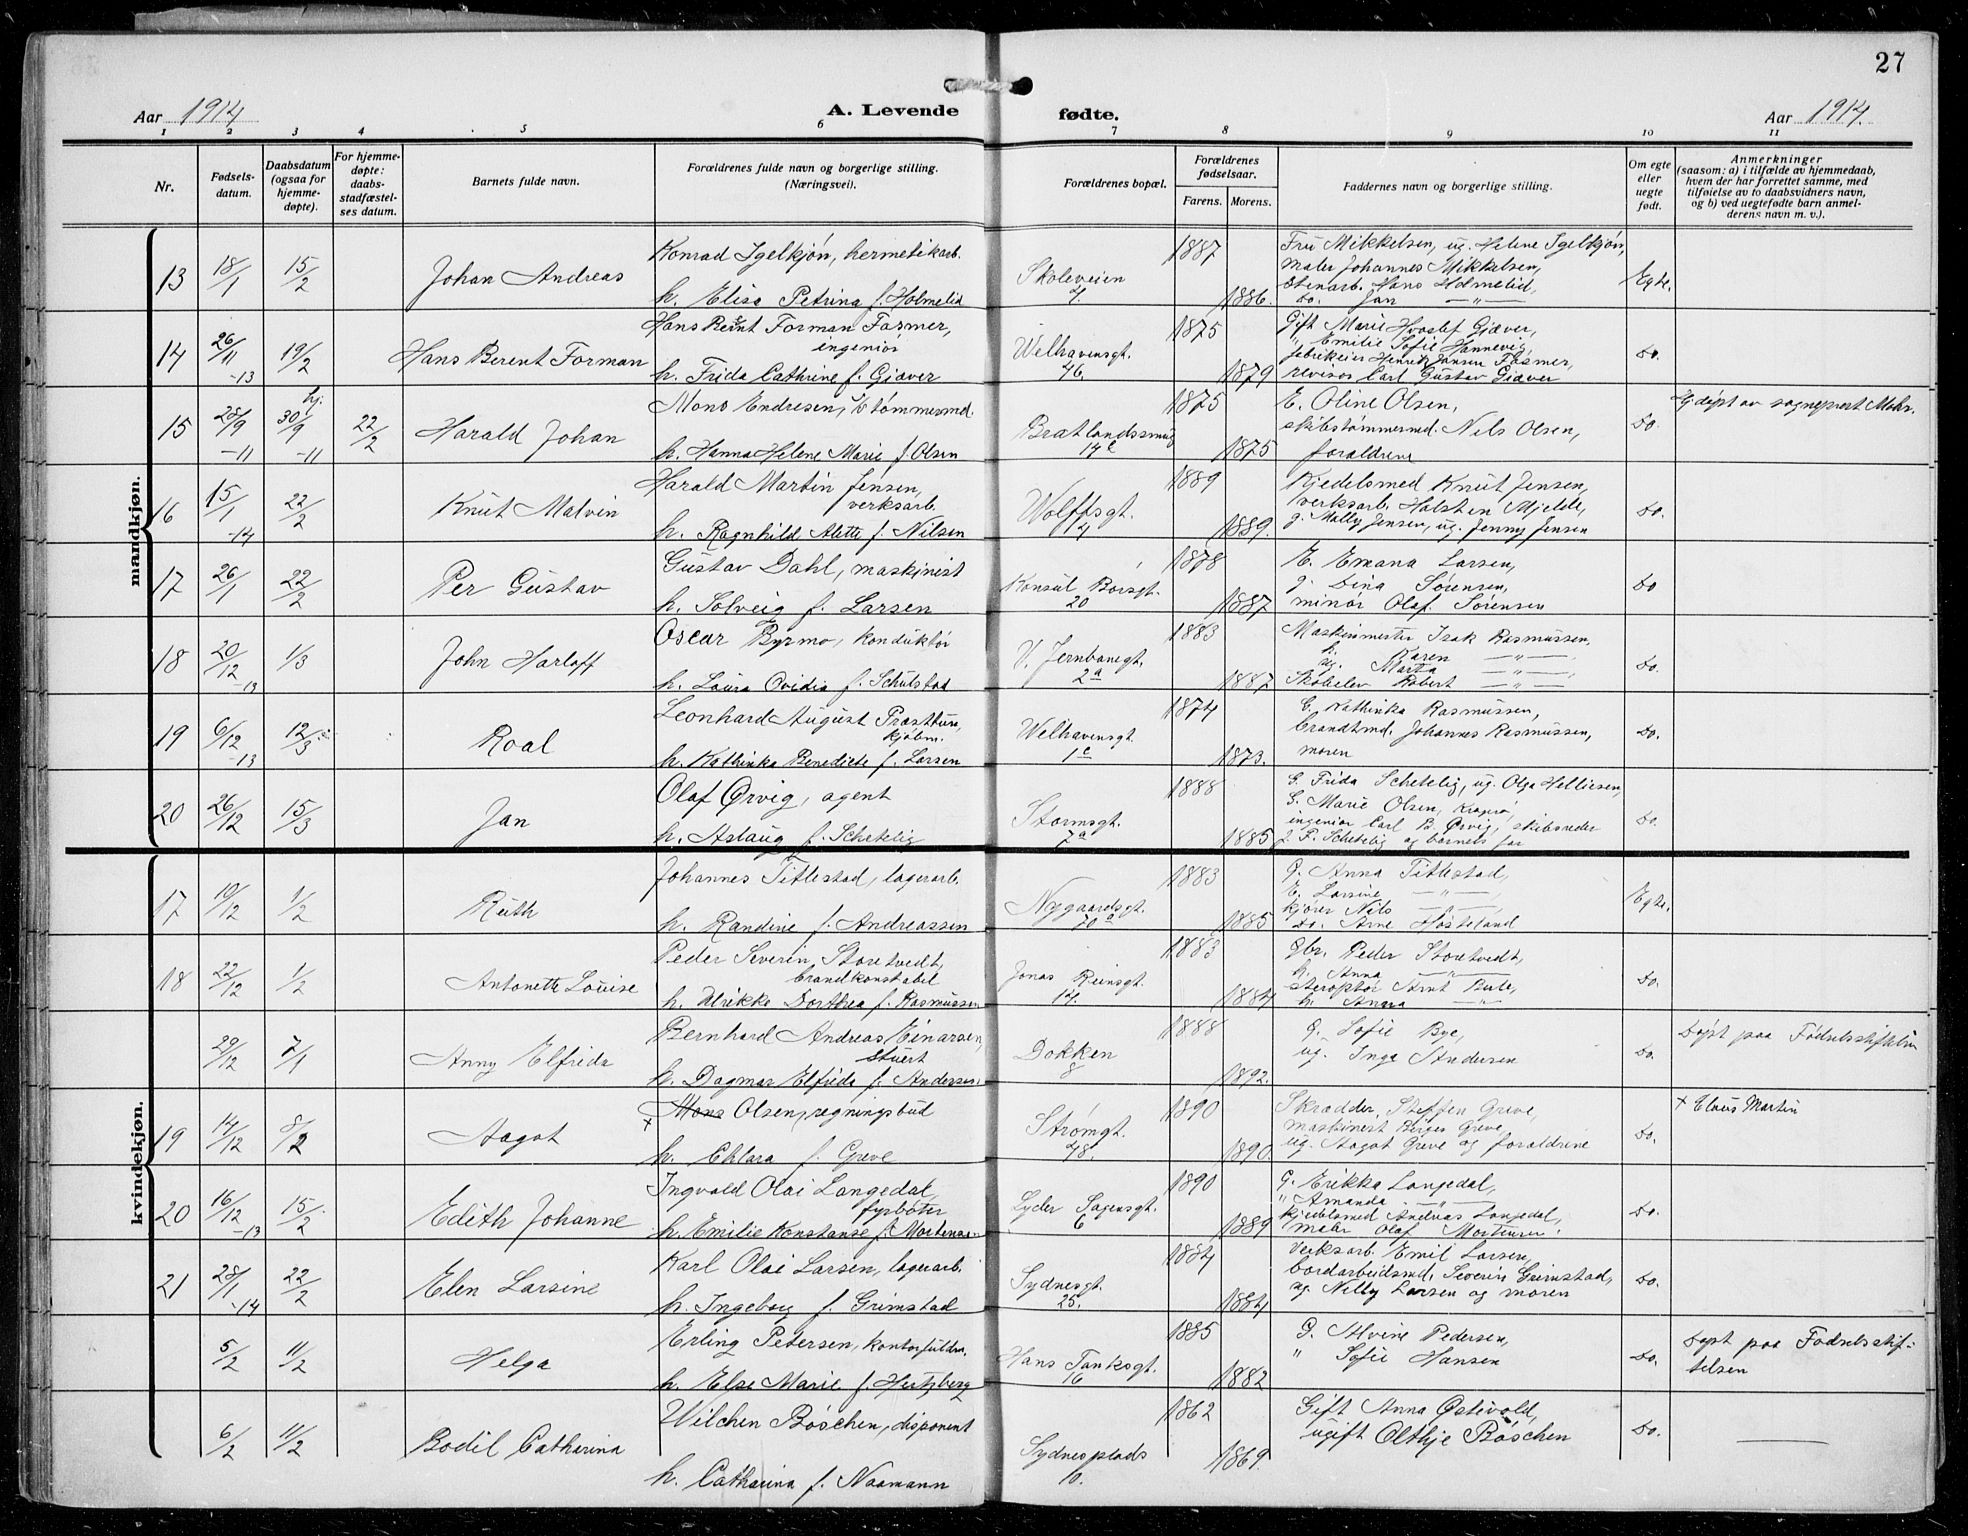 27
Aar 1914
A. Levende
fødte.
Aar 1914.
1 2 3 4 5 6 7 8 9 10 11
Nr.
Fødsels-
datum.
Daabsdatum
(ogsaa for
hjemme-
døpte).
For hjemme-
døpte:
daabs-
stadfæstel-
ses datum.
Barnets fulde navn.
Forældrenes fulde navn og borgerlige stilling.
(Næringsvei).
Forældrenes bopæl.
Forældrenes
fødselsaar.
Farens. Morens.
Faddernes navn og borgerlige stilling.
Om egte
eller
uegte
født.
Anmerkninger
(saasom: a) i tilfælde av hjemmedaab,
hvem der har forrettet samme, med
tilføielse av to daabsvidners navn,
og b) ved uegtefødte barn anmel-
derens navn m. v.).
mandkjøn.
13 18/1 15/2 Johan Andreas
Konrad Igelkjøn, hermetikarb.
h. Elisa Petrina f. Holmelid
Skoleveien
4.
1887
1886.
Fru Mikkelsen, ug. Helene Igelkjøn,
maler Johannes Mikkelsen,
stenarb. Hans Holmelid,
Do. Jan — " —
Egte.
14 26/11 -13 19/2 Hans Berent Forman
Hans Berent Forman Fasmer,
ingeniør
h. Frida Cathrine f. Giæver
Welhavensgt.
46.
1875
1879
Gift Marie Hvoslef Giæver,
" Emilie Sofie Hannevig,
fabrikeier Henrik Jansen Fasmer,
revisor Carl Gustav Giæver
Do.
15 28/9 -11 hj. 30/9 -11 22/2 Harald Johan
Mons Endresen, tømmermd.
h. Hanna Helene Marie f. Olsen
Bratlandssmug
14c
1875
1875
E. Oline Olsen,
skibstømmermd. Nils Olsen,
forældrene
Do.
Hj. døpt av sogneprest Mohr.
16 15/1 -14 22/2 Knut Malvin
Harald Martin Jensen,
verksarb.
h. Ragnhild Alette f. Nilsen
Wolffsgt.
4
1889
1889.
Kjedelsmed Knut Jensen,
verksarb. Halsten Mjelde,
g. Mally Jensen, ug. Jenny Jensen
Do.
17 26/1 22/2 Per Gustav
Gustav Dahl, maskinist
h. Solveig f. Larsen
Konsul Børsgt.
20
1878
1887.
E. Emana Larsen,
g. Dina Sørensen,
minør Olaf Sørensen
Do
18 20/12 -13 1/3 John Harloff
Oscar Byrmo, konduktør
h. Laura Ovidia f. Schulstad
V. Jernbanegt.
2a
1883
1887.
Maskinmester Isak Rasmussen,
h. Karen — " —,
ug. Marta — " —,
Skoelev Robert — " —
Do.
19 6/12 -13 12/3 Roal
Leonhard August Præsthun,
kjøbm.
h. Kathinka Benedicte f. Larsen
Welhavensgt.
1c
1874
1873.
E. Kathinka Rasmussen,
brandtmd. Johannes Rasmussen,
moren
Do.
20 26/12 15/3 Jan
Olaf Ørvig, agent
h. Aslaug f. Schetelig
Stormsgt.
7a
1888
1885
G. Frida Schetelig, ug. Olga Helliesen,
G. Marie Olsen, Kragerø,
ingeniør Carl B. Ørvig, skibsreder
J. F. Schetelig og barnets far
Do.
kvindekjøn.
17 19/12 1/2 Ruth
Johannes Titlestad, lagerarb.
h. Randine f. Andreassen
Nygaardsgt.
70a
1883
1885
G. Anna Titlestad,
E. Larsine — " —,
kjører Nils — " —,
Do. Arne Hosteland
Egte.
18 22/12 1/2 Antonette Louise
Peder Severin Storetvedt,
brandkonstabel
h. Ulrikke Dorthea f. Rasmussen
Jonas Reinsgt.
14.
1883
1884
Gbr. Peder Storetvedt,
h. Anna — " —,
Arnt Bule,
h. Anna — " —
Do.
29/12 7/1 Anny Elfrida
Bernhard Andreas Einarsen,
stuert
h. Dagmar Elfrida f. Andersen.
Dokken
8
1888
1892.
G. Sofie Bye,
ug. Inga Andersen
Do.
Døpt paa Fødselsstiftelsen
19 14/12 8/2 Aagot
Mons Olsen, regningsbud
+
h. Chlara f. Greve
Strømgt.
48.
1890
1890.
Skrædder, Steffen Greve,
maskinist Berges Greve,
ug. Aagot Greve og forældrene
Do.
+ Claus Martin
20 16/12 -13 15/2 Edith Johanne
Ingvald Olai Langedal,
fyrbøter
h. Emilie Konstanse f. Mortensen
Lyder Sagensgt.
6
1890
1889
G. Erikka Langedal,
" Amanda — " —
kjedelsmed Andreas Langedal,
maler Olaf Mortensen.
Do.
21 28/1 -14 22/2 Elen Larsine
Karl Olai Larsen, lagerarb.
h. Ingeborg f. Grimstad
Sydnesgt.
25.
1884
1884
Verksarb. Emil Larsen,
bordarbeidsmd. Severin Grimstad,
ug. Nilly Larsen og moren
Do.
5/2 11/2 Helga
Erling Petersen, kontorfuldm.
h. Else Marie f. Hertzberg
Hans Tanksgt.
16
1885
1882
G. Alvine Pedersen,
" Sofie Hansen
Do.
Døpt paa Fødselsstif-
telsen
6/2 11/2 Bodil Catharina
Wilchen Bøschen, disponent
h. Catharina f. Naamann
Sydnesplads
10.
1862
1869.
Gift Anna Østevold,
ugift Olthje Bøschen
Do.